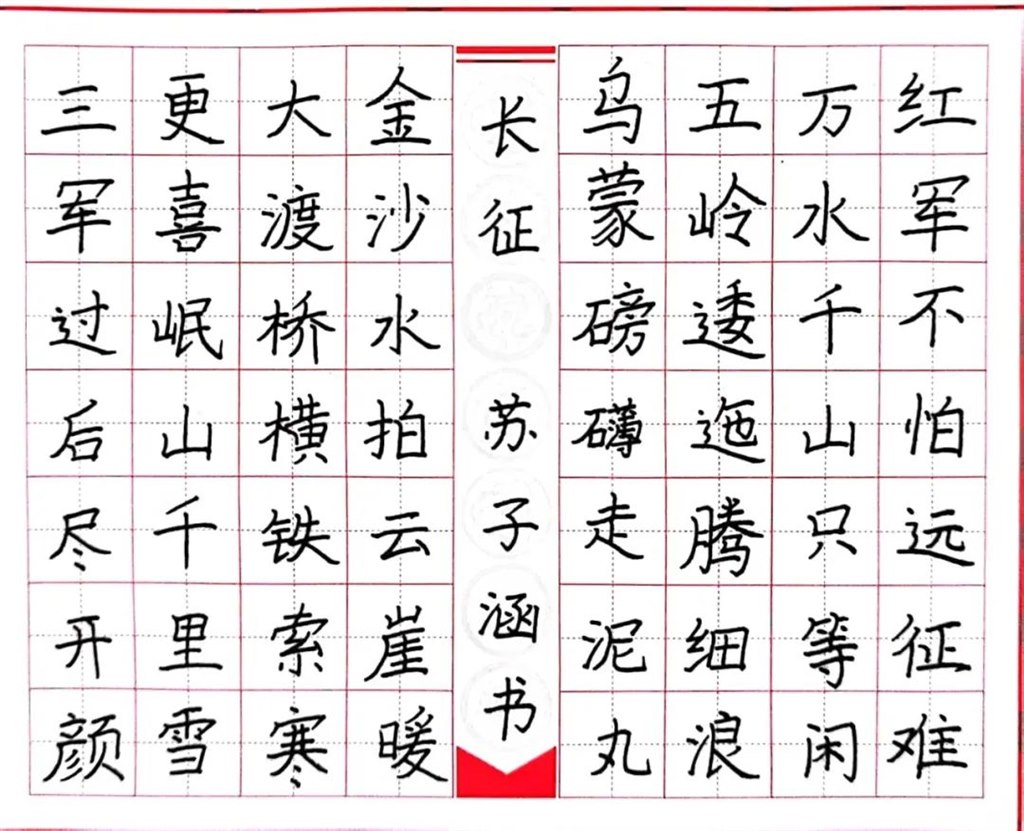 红军不怕远征难
万水千山只等闲
五岭逶迤腾细浪
乌蒙磅礴走泥丸
长征 苏子涵书
金沙水拍云崖暖
大渡桥横铁索寒
更喜岷山千里雪
三军过后尽开颜